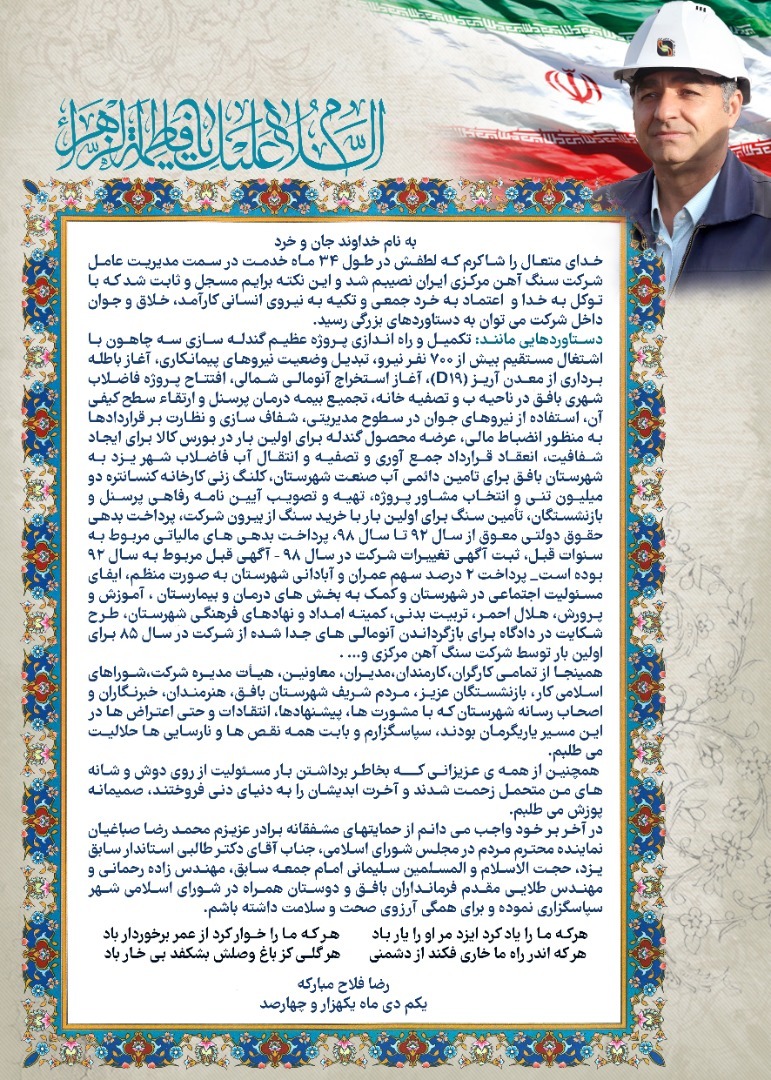 السلام علیک یا فاطمة الزهراء
به نام خداوند جان و خرد
خدای متعال را شاکرم که لطفش در طول ۳۴ ماه خدمت در سمت مدیریت عامل
شرکت سنگ آهن مرکزی ایران نصیبم شد و این نکته برایم مسجل و ثابت شد که با
توکل به خدا و اعتماد به خرد جمعی و تکیه به نیروی انسانی کارآمد، خلاق و جوان
داخل شرکت می توان به دستاوردهای بزرگی رسید.
دستاوردهایی مانند: تکمیل و راه اندازی پروژه عظیم گندله سازی سه چاهون با
اشتغال مستقیم بیش از ۷۰۰ نفر نیرو، تبدیل وضعیت نیروهای پیمانکاری، آغاز باطله
برداری از معدن آریز (D19)، آغاز استخراج آنومالی شمالی، افتتاح پروژه فاضلاب
شهری بافق در ناحیه ب و تصفیه خانه، تجمیع بیمه درمان پرسنل و ارتقاء سطح کیفی
آن، استفاده از نیروهای جوان در سطوح مدیریتی، شفاف سازی و نظارت بر قراردادها
به منظور انضباط مالی، عرضه محصول گندله برای اولین بار در بورس کالا برای ایجاد
شفافیت، انعقاد قرارداد جمع آوری و تصفیه و انتقال آب فاضلاب شهر یزد به
شهرستان بافق برای تامین دائمی آب صنعت شهرستان، کلنگ زنی کارخانه کنسانتره دو
میلیون تنی و انتخاب مشاور پروژه، تهیه و تصویب آیین نامه رفاهی پرسنل و
بازنشستگان، تأمین سنگ برای اولین بار با خرید سنگ از بیرون شرکت، پرداخت بدهی
حقوق دولتی معوق از سال ۹۲ تا سال ۹۸، پرداخت بدهی های مالیاتی مربوط به
سنوات قبل، ثبت آگهی تغییرات شرکت در سال ۹۸ - آگهی قبل مربوط به سال ۹۲
بوده است_ پرداخت ۲ درصد سهم عمران و آبادانی شهرستان به صورت منظم، ایفای
مسئولیت اجتماعی در شهرستان و کمک به بخش های درمان و بیمارستان ، آموزش و
پرورش، هلال احمر، تربیت بدنی، کمیته امداد و نهادهای فرهنگی شهرستان، طرح
شکایت در دادگاه برای بازگرداندن آنومالی های جدا شده از شرکت در سال ۸۵ برای
اولین بار توسط شرکت سنگ آهن مرکزی و... .
همینجا از تمامی کارگران،کارمندان،مدیران، معاونین، هیأت مدیره شرکت،شوراهای
اسلامی کار، بازنشستگان عزیز، مردم شریف شهرستان بافق، هنرمندان، خبرنگاران و
اصحاب رسانه شهرستان که با مشورت ها، پیشنهادها، انتقادات و حتی اعتراض ها در
این مسیر یاریگرمان بودند، سپاسگزارم و بابت همه نقص ها و نارسایی ها حلالیت
می طلبم.
همچنین از همه ی عزیزانی که بخاطر برداشتن بار مسئولیت از روی دوش و شانه
های من متحمل زحمت شدند و آخرت ابدیشان را به دنیای دنی فروختند، صمیمانه
پوزش می طلبم.
در آخر بر خود واجب می دانم از حمایتهای مشفقانه برادر عزیزم محمد رضا صباغیان
نماینده محترم مردم در مجلس شورای اسلامی، جناب آقای دکتر طالبی استاندار سابق
یزد، حجت الاسلام و المسلمین سلیمانی امام جمعه سابق، مهندس زاده رحمانی و
مهندس طلایی مقدم فرمانداران بافق و دوستان همراه در شورای اسلامی شهر
سپاسگزاری نموده و برای همگی آرزوی صحت و سلامت داشته باشم.
هرکه ما را یاد کرد ایزد مر او را یار باد هرکه ما را خوار کرد از عمر برخوردار باد
هرکه اندر راه ما خاری فکند از دشمنی هر گلی کز باغ وصلش بشکفد بی خار باد
رضا فلاح مبارکه
یکم دی ماه یکهزار و چهارصد